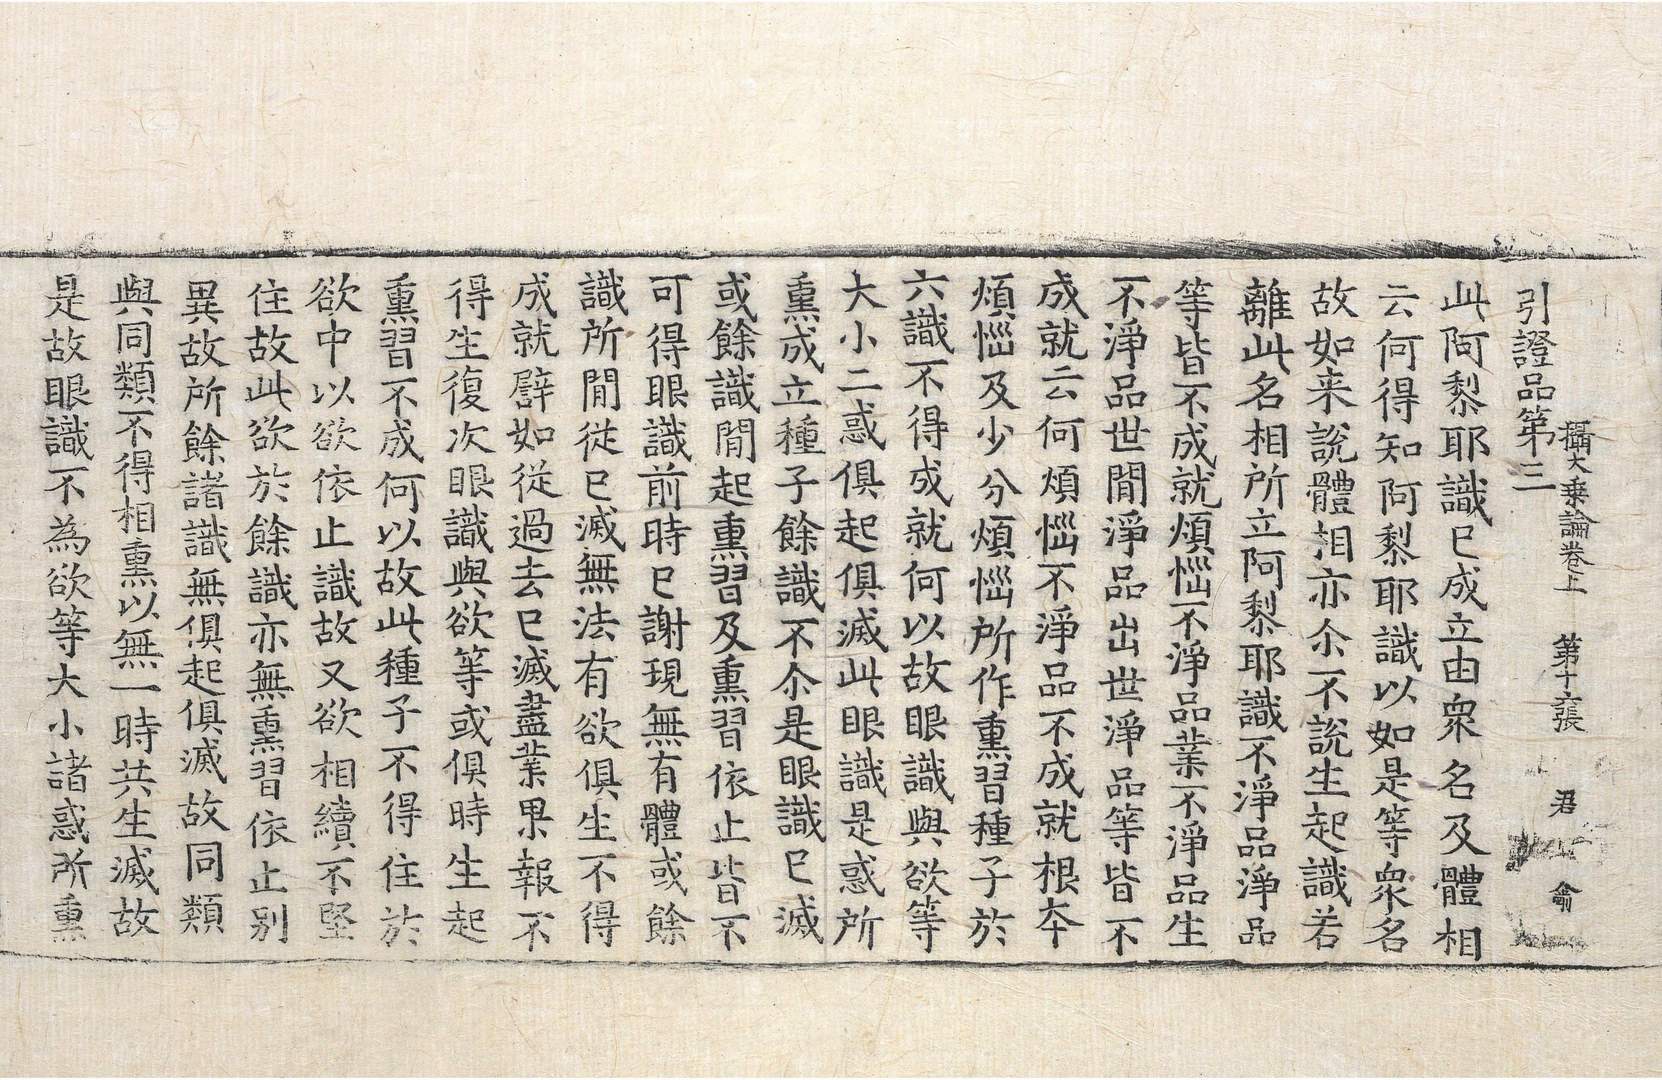 攝大乗論卷上　第十六張　君　龠
引證品第三
此阿梨耶識已成立由衆名及體相
云何得知阿梨耶識以如是等衆名
故如来說體相亦尒不說生起識若
離此名相所立阿梨耶識不淨品淨品
等皆不成就煩惱不淨品業不淨品生
不淨品世間淨品出世淨品等皆不
成就云何煩惱不淨品不成就根夲
煩惱及少分煩惱所作熏習種子於
六識不得成就何以故眼識與欲等
大小二惑俱起俱滅此眼識是惑所
熏成立種子餘識不尒是眼識已滅
或餘識間起熏習及熏習依止皆不
可得眼識前時已謝現無有體或餘
識所間從已滅無法有欲俱生不得
成就譬如從過去已滅盡業果報不
得生復次眼識與欲等或俱時生起
熏習不成何以故此種子不得住於
欲中以欲依止識故又欲相續不堅
住故此欲於餘識亦無熏習依止别
異故所餘諸識無俱起俱滅故同類
與同類不得相熏以無一時共生滅故
是故眼識不為欲等大小諸惑所熏